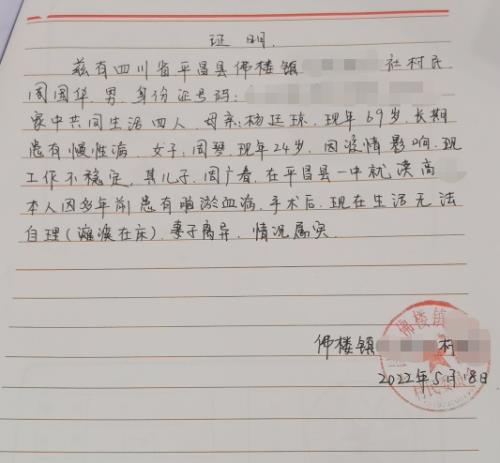 证明.
兹有四川省平昌县佛楼镇 社村民
周国华.男.身份证号码:
家中共同生活四人.母亲:杨廷琼.现年69岁.长期
患有慢性病.女子:周琴.现年24岁.因疫情影响.现
工作不稳定.其儿子.周广春.在平昌县一中就读高
本人因多年前患有脑淤血病.手术后.现在生活无法
自理(瘫痪在床).妻子离异.情况属实.
佛楼镇 村
2022年5月18日
佛楼镇
村民委